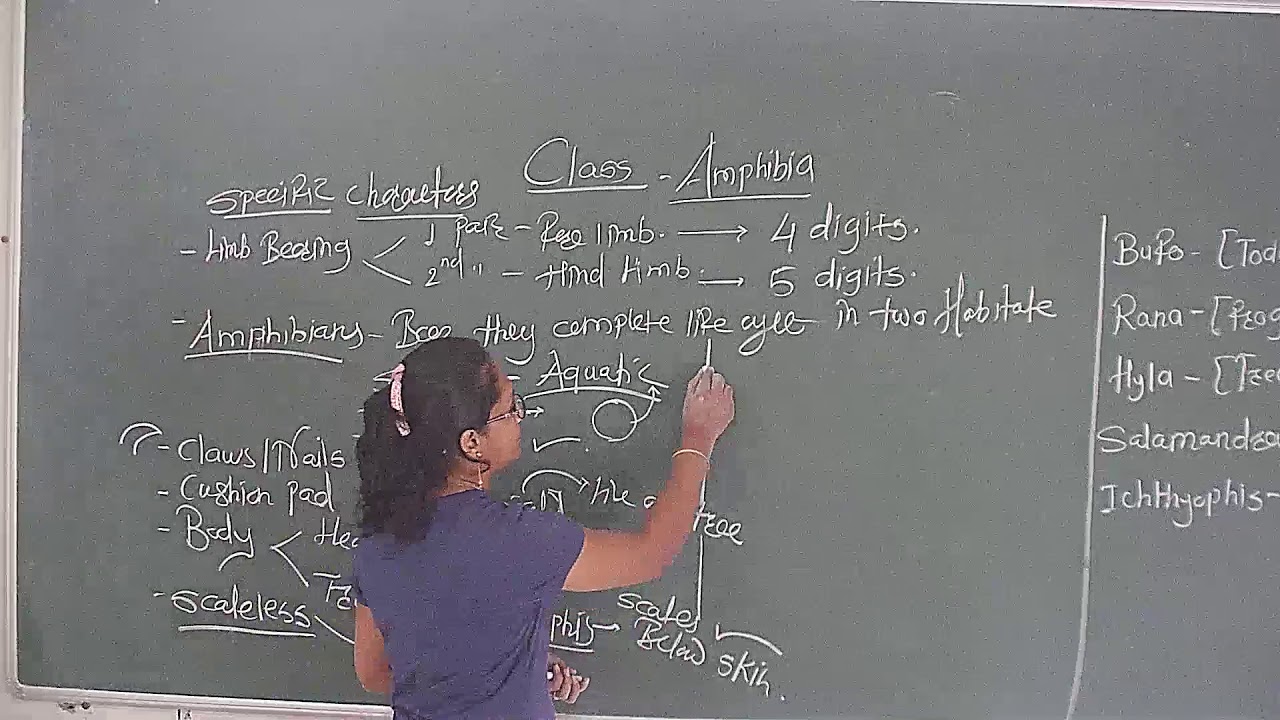 Class - Amphibia
Specific Characters
- Limb Bearing
1 pair - Fore limb. → 4 digits.
2nd " - Hind limb. → 5 digits.
- Amphibians - they complete life cycle in two Habitate
Aquatic
- Claws/Nails
- Cushion pad
- Body < Hea
tree
- Scaleless
phis → scales Below skin.
Bufo - [Toa
Rana - [Frog
Hyla - [Tree
Salamander
Ichthyophis -